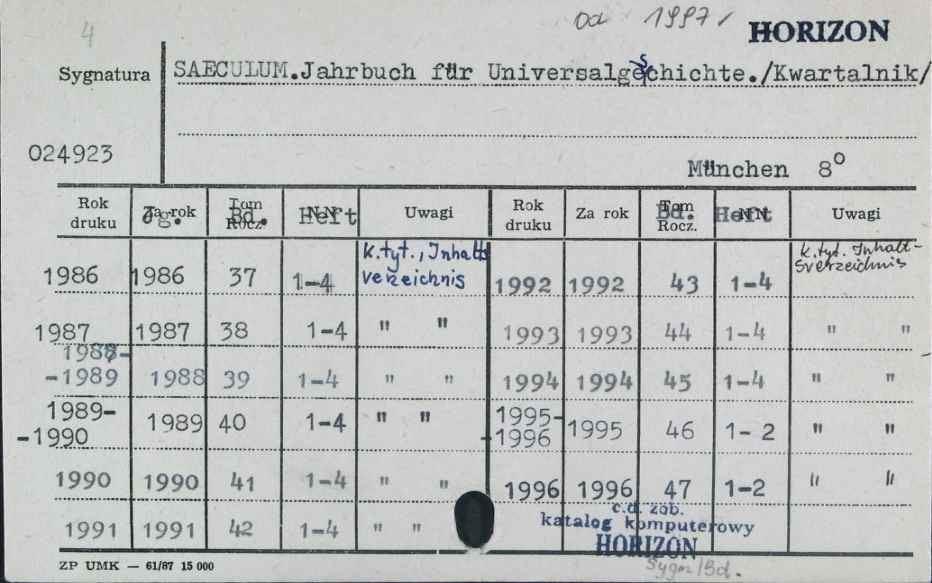 4 od 1997 HORIZON
Sygnatura SAECULUM.Jahrbuch für Universalgeschichte./Kwartalnik/
024923
München 8°
Rok druku Za rok Jg. Tom Bd. Rocz. NN Heft Uwagi Rok druku Za rok Tom Bd. Rocz. NN Heft Uwagi
1986 1986 37 1-4 k.tyt., Inhalts verzeichnis 1992 1992 43 1-4 k.tyt. Inhalt- sverzeichnis
1987 1987 38 1-4 " " 1993 1993 44 1-4 " "
1988- -1989 1988 39 1-4 " " 1994 1994 45 1-4 " "
1989- -1990 1989 40 1-4 " " 1995- -1996 1995 46 1- 2 " "
1990 1990 41 1-4 " " 1996 1996 47 1-2 " "
1991 1991 42 1-4 " " c.d. zob.
katalog komputerowy
HORIZON
ZP UMK — 61/87 15 000 Sygn/Bd.